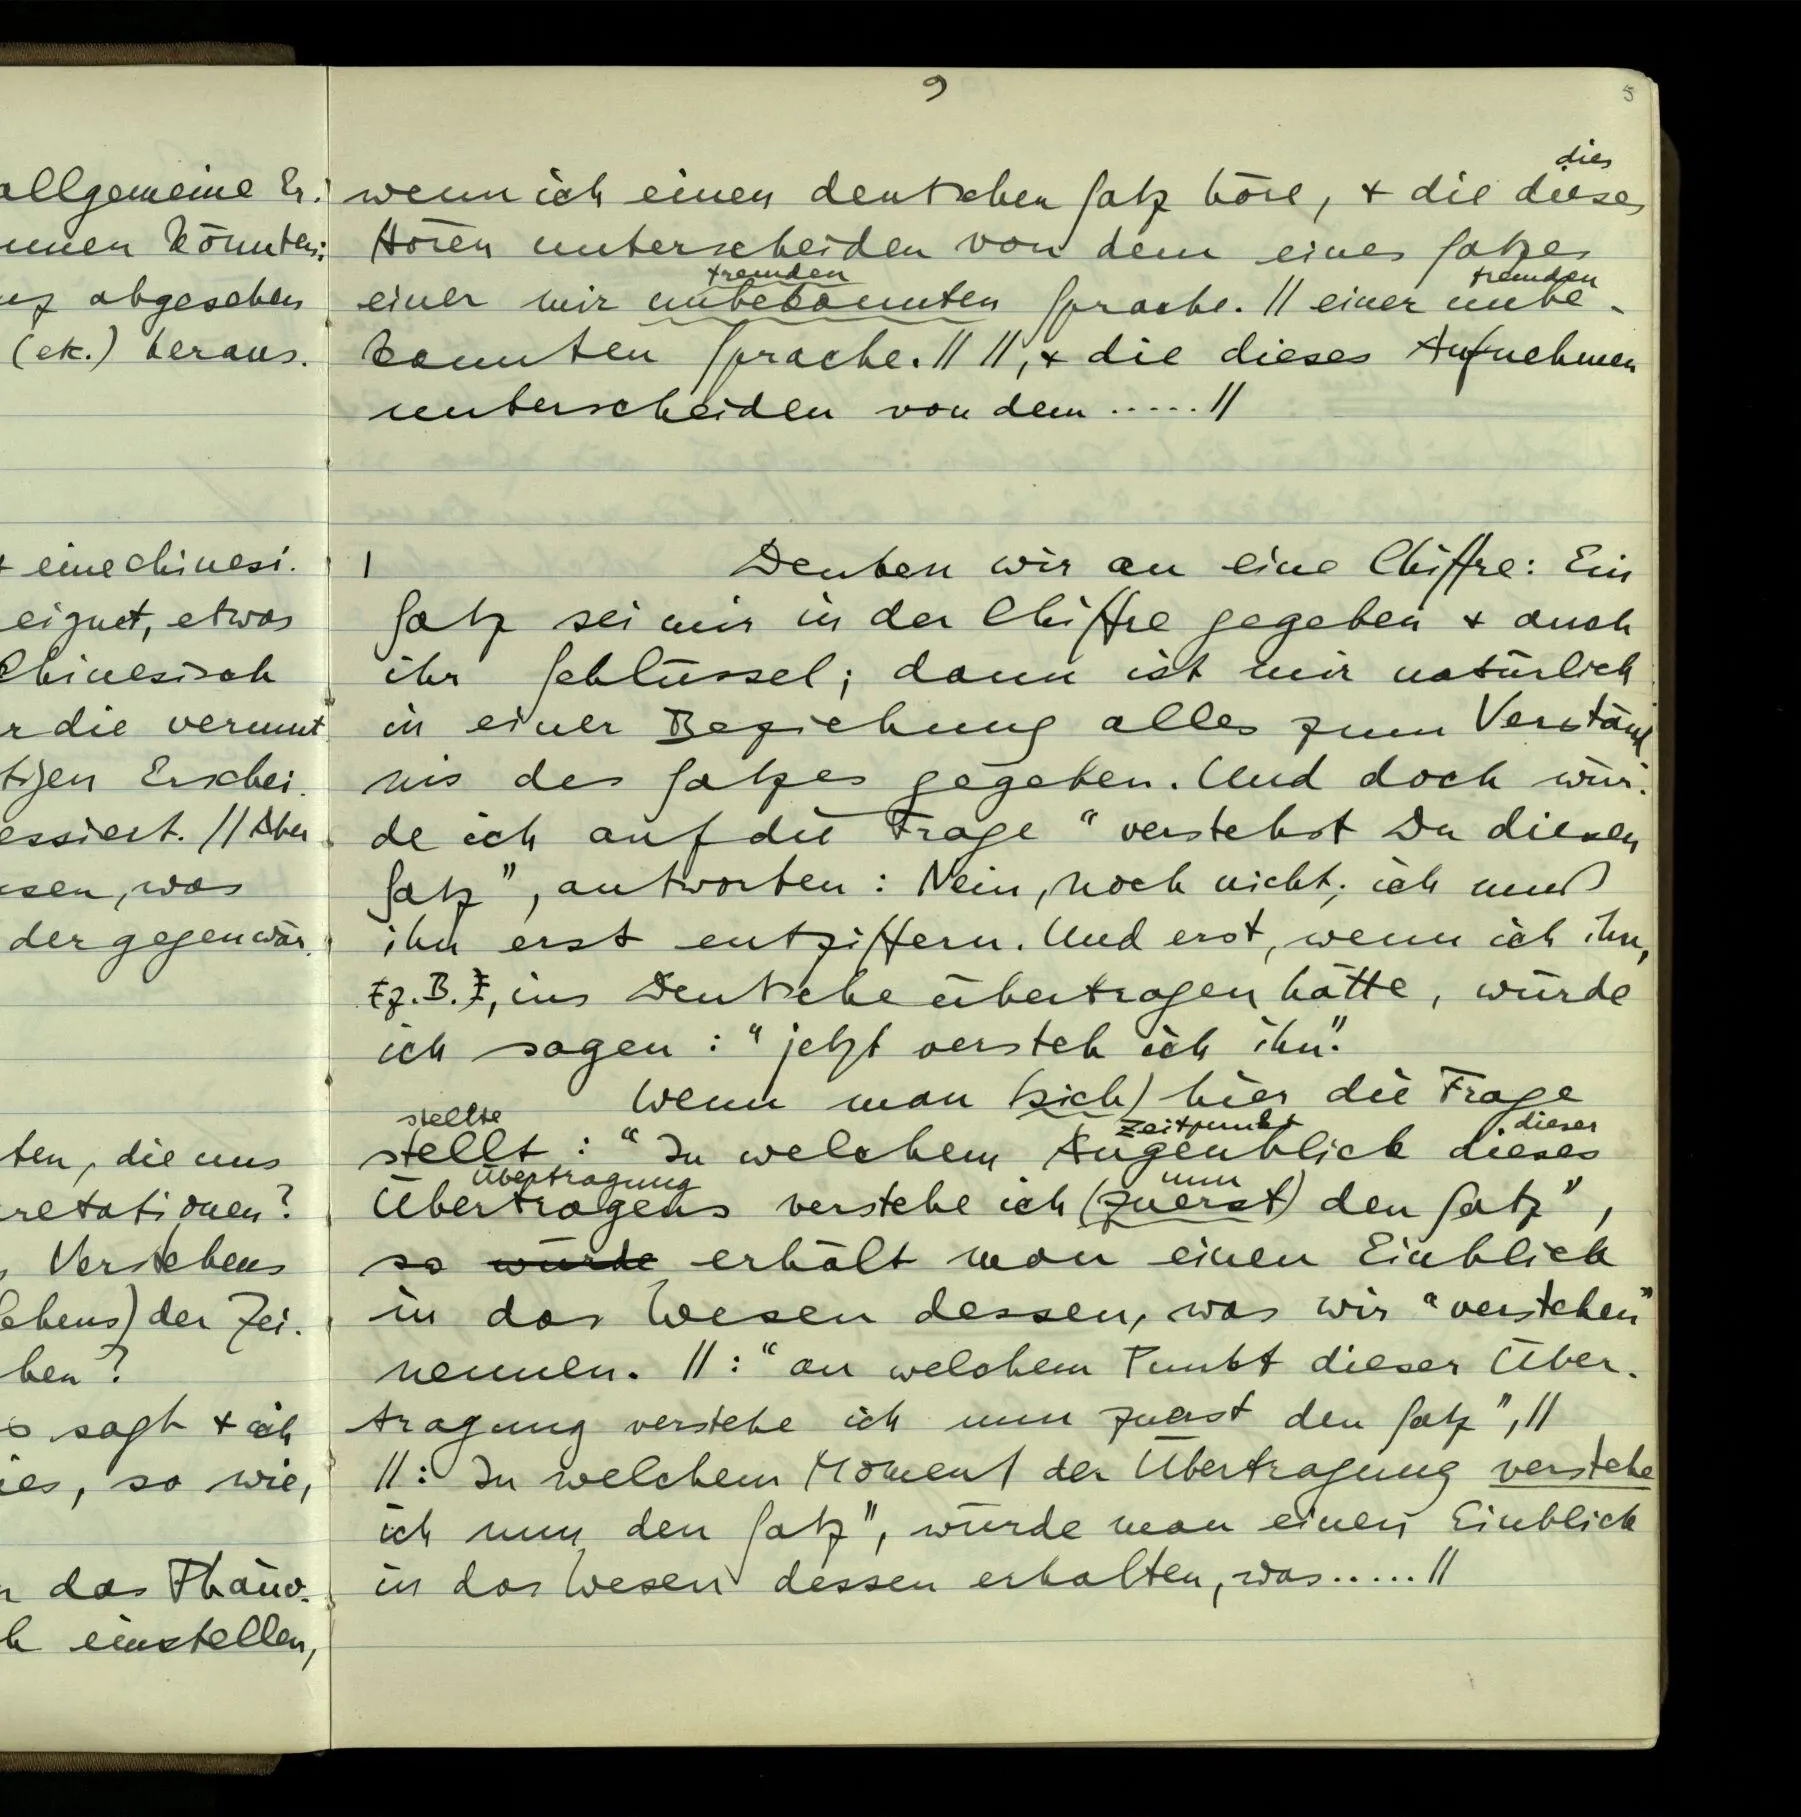 9
5
allgemeine Er.
nnen könnten;
nz abgesehen
(etc.) heraus.
+ eine chinesi.
eignet, etwas
Chinesisch
r die vermut
tigen Erschei.
essiert. // Aber
ssen, was
der gegenwär.
ten, die uns
retationen?
Verstehens
ehens) der Zei.
hen?
s sagt + ich
ies, so wie,
n das Phäno.
h einstellen,
dies
wenn ich einen deutschen Satz höre, + die dieses
Hören unterscheiden von dem eines Satzes
fremden fremden
einer mir unbekannten Sprache. // einer unbe-
kannten Sprache. // //, + die dieses Aufnehmen
unterscheiden von dem ..... //
| Denken wir an eine Chiffre: Ein
Satz sei mir in der Chiffre gegeben + auch
ihr Schlüssel; dann ist mir natürlich
in einer Beziehung alles zum Verständ
nis des Satzes gegeben. Und doch wür.
de ich auf die Frage "verstehst Du diesen
Satz", antworten: Nein, noch nicht; ich muß
ihn erst entziffern. Und erst, wenn ich ihn,
z.B., ins Deutsche übertragen hätte, würde
ich sagen: "jetzt versteh ich ihn".
Wenn man (sich) hier die Frage
stellte Zeitpunkt dieser
stellt: "In welchem Augenblick dieses
Übertragung nun
Übertragens verstehe ich (zuerst) den Satz",
so würde erhält man einen Einblick
in das Wesen dessen, was wir "verstehen"
nennen. //: "an welchem Punkt dieser Über.
tragung verstehe ich nun zuerst den Satz", //
//: In welchem Moment der Übertragung verstehe
ich nun den Satz", würde man einen Einblick
in das Wesen dessen erhalten, was ..... //